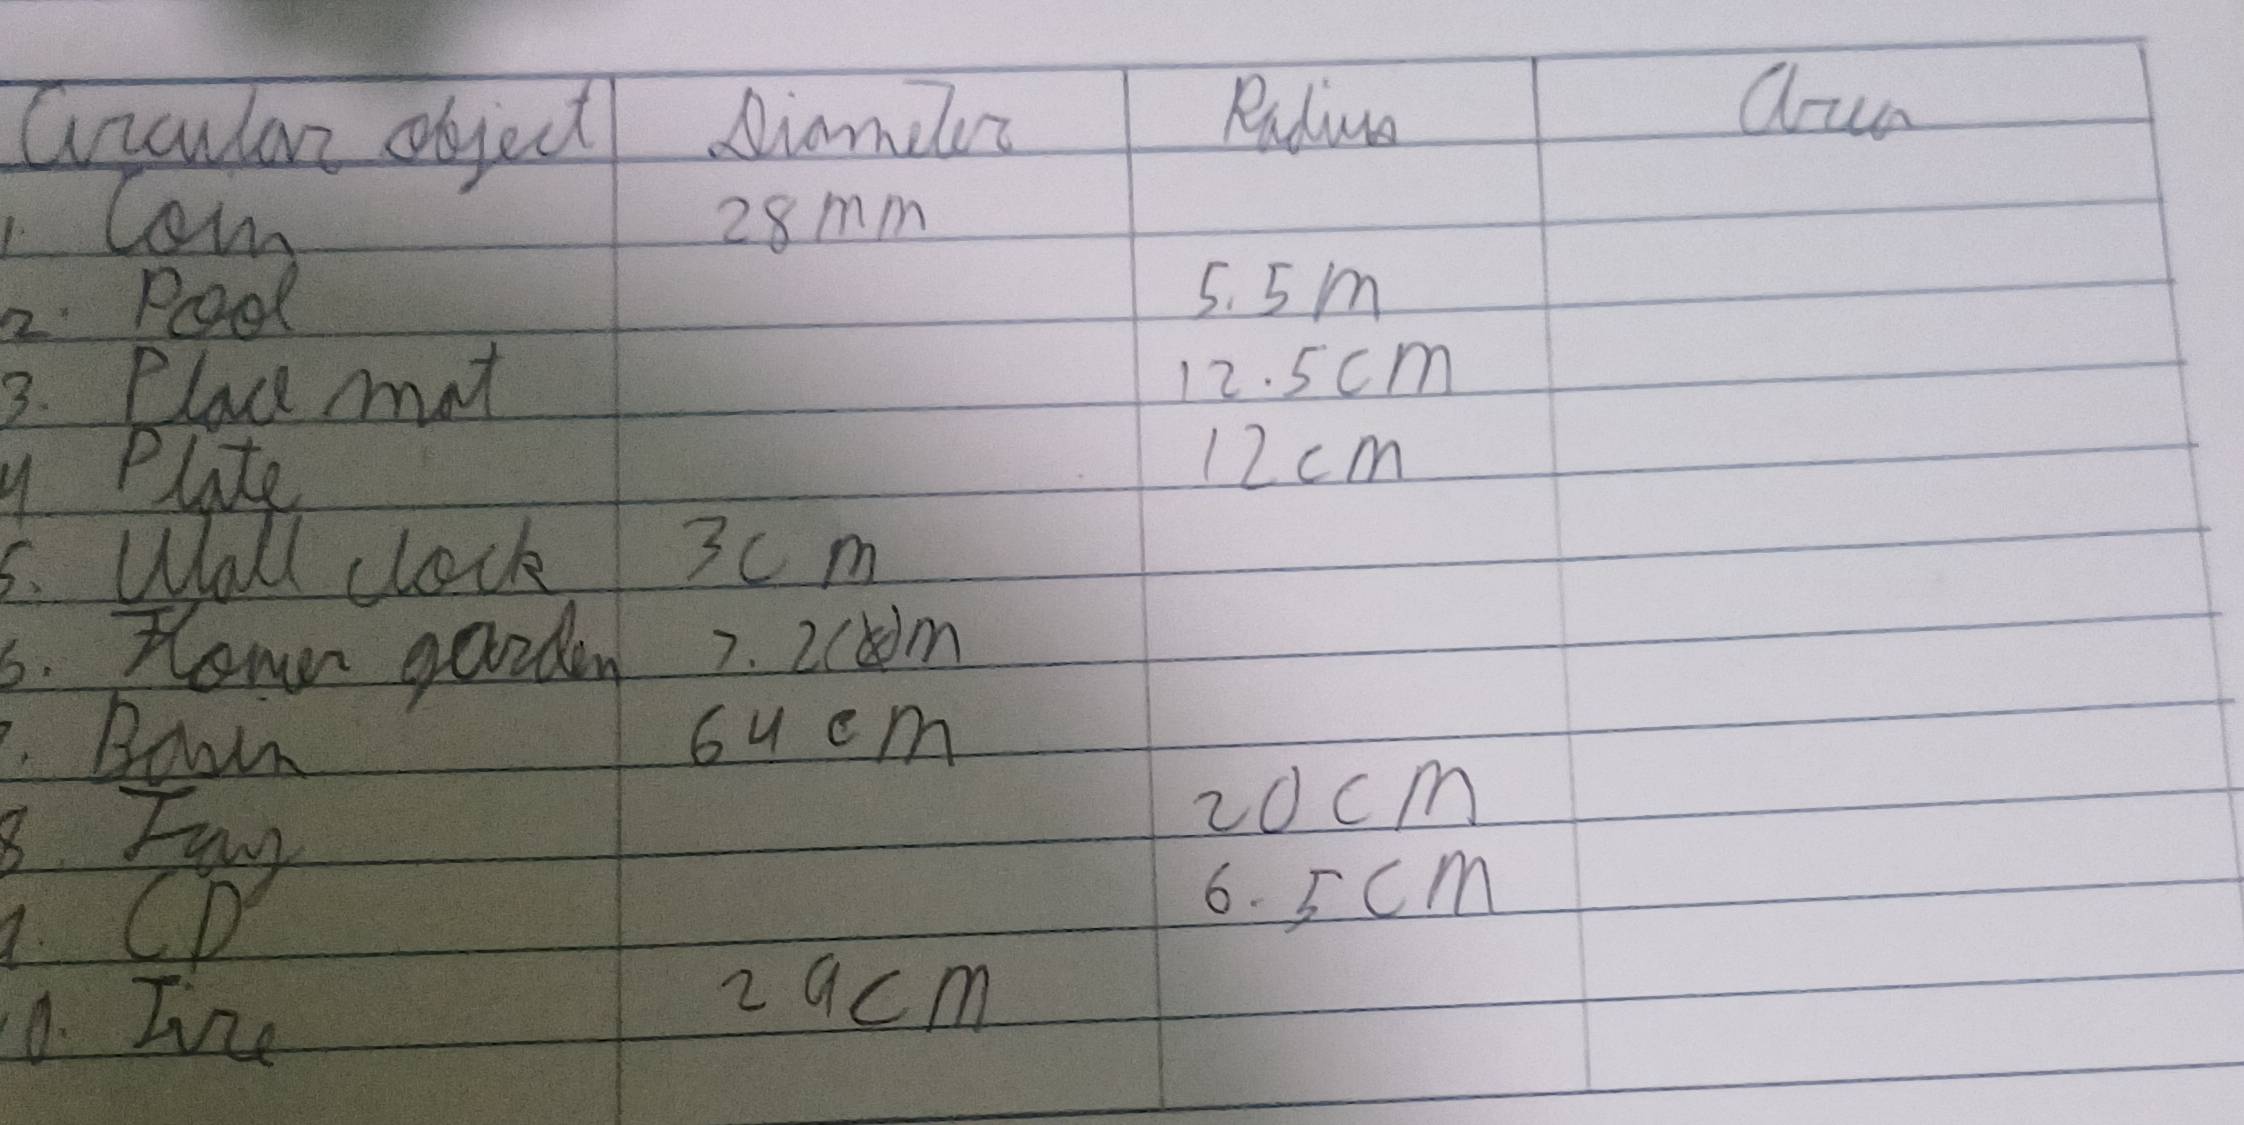 Circular object Diameter Radius Area
1. Coin 28mm
2. Pool 5.5m
3. Place mat 12.5cm
4 Plate 12cm
5. Wall clock 3cm
6. Flower garden 7.2 m
7. Basin 64cm
8. Tray 20cm
9. CD 6.5cm
10. Tire 29cm